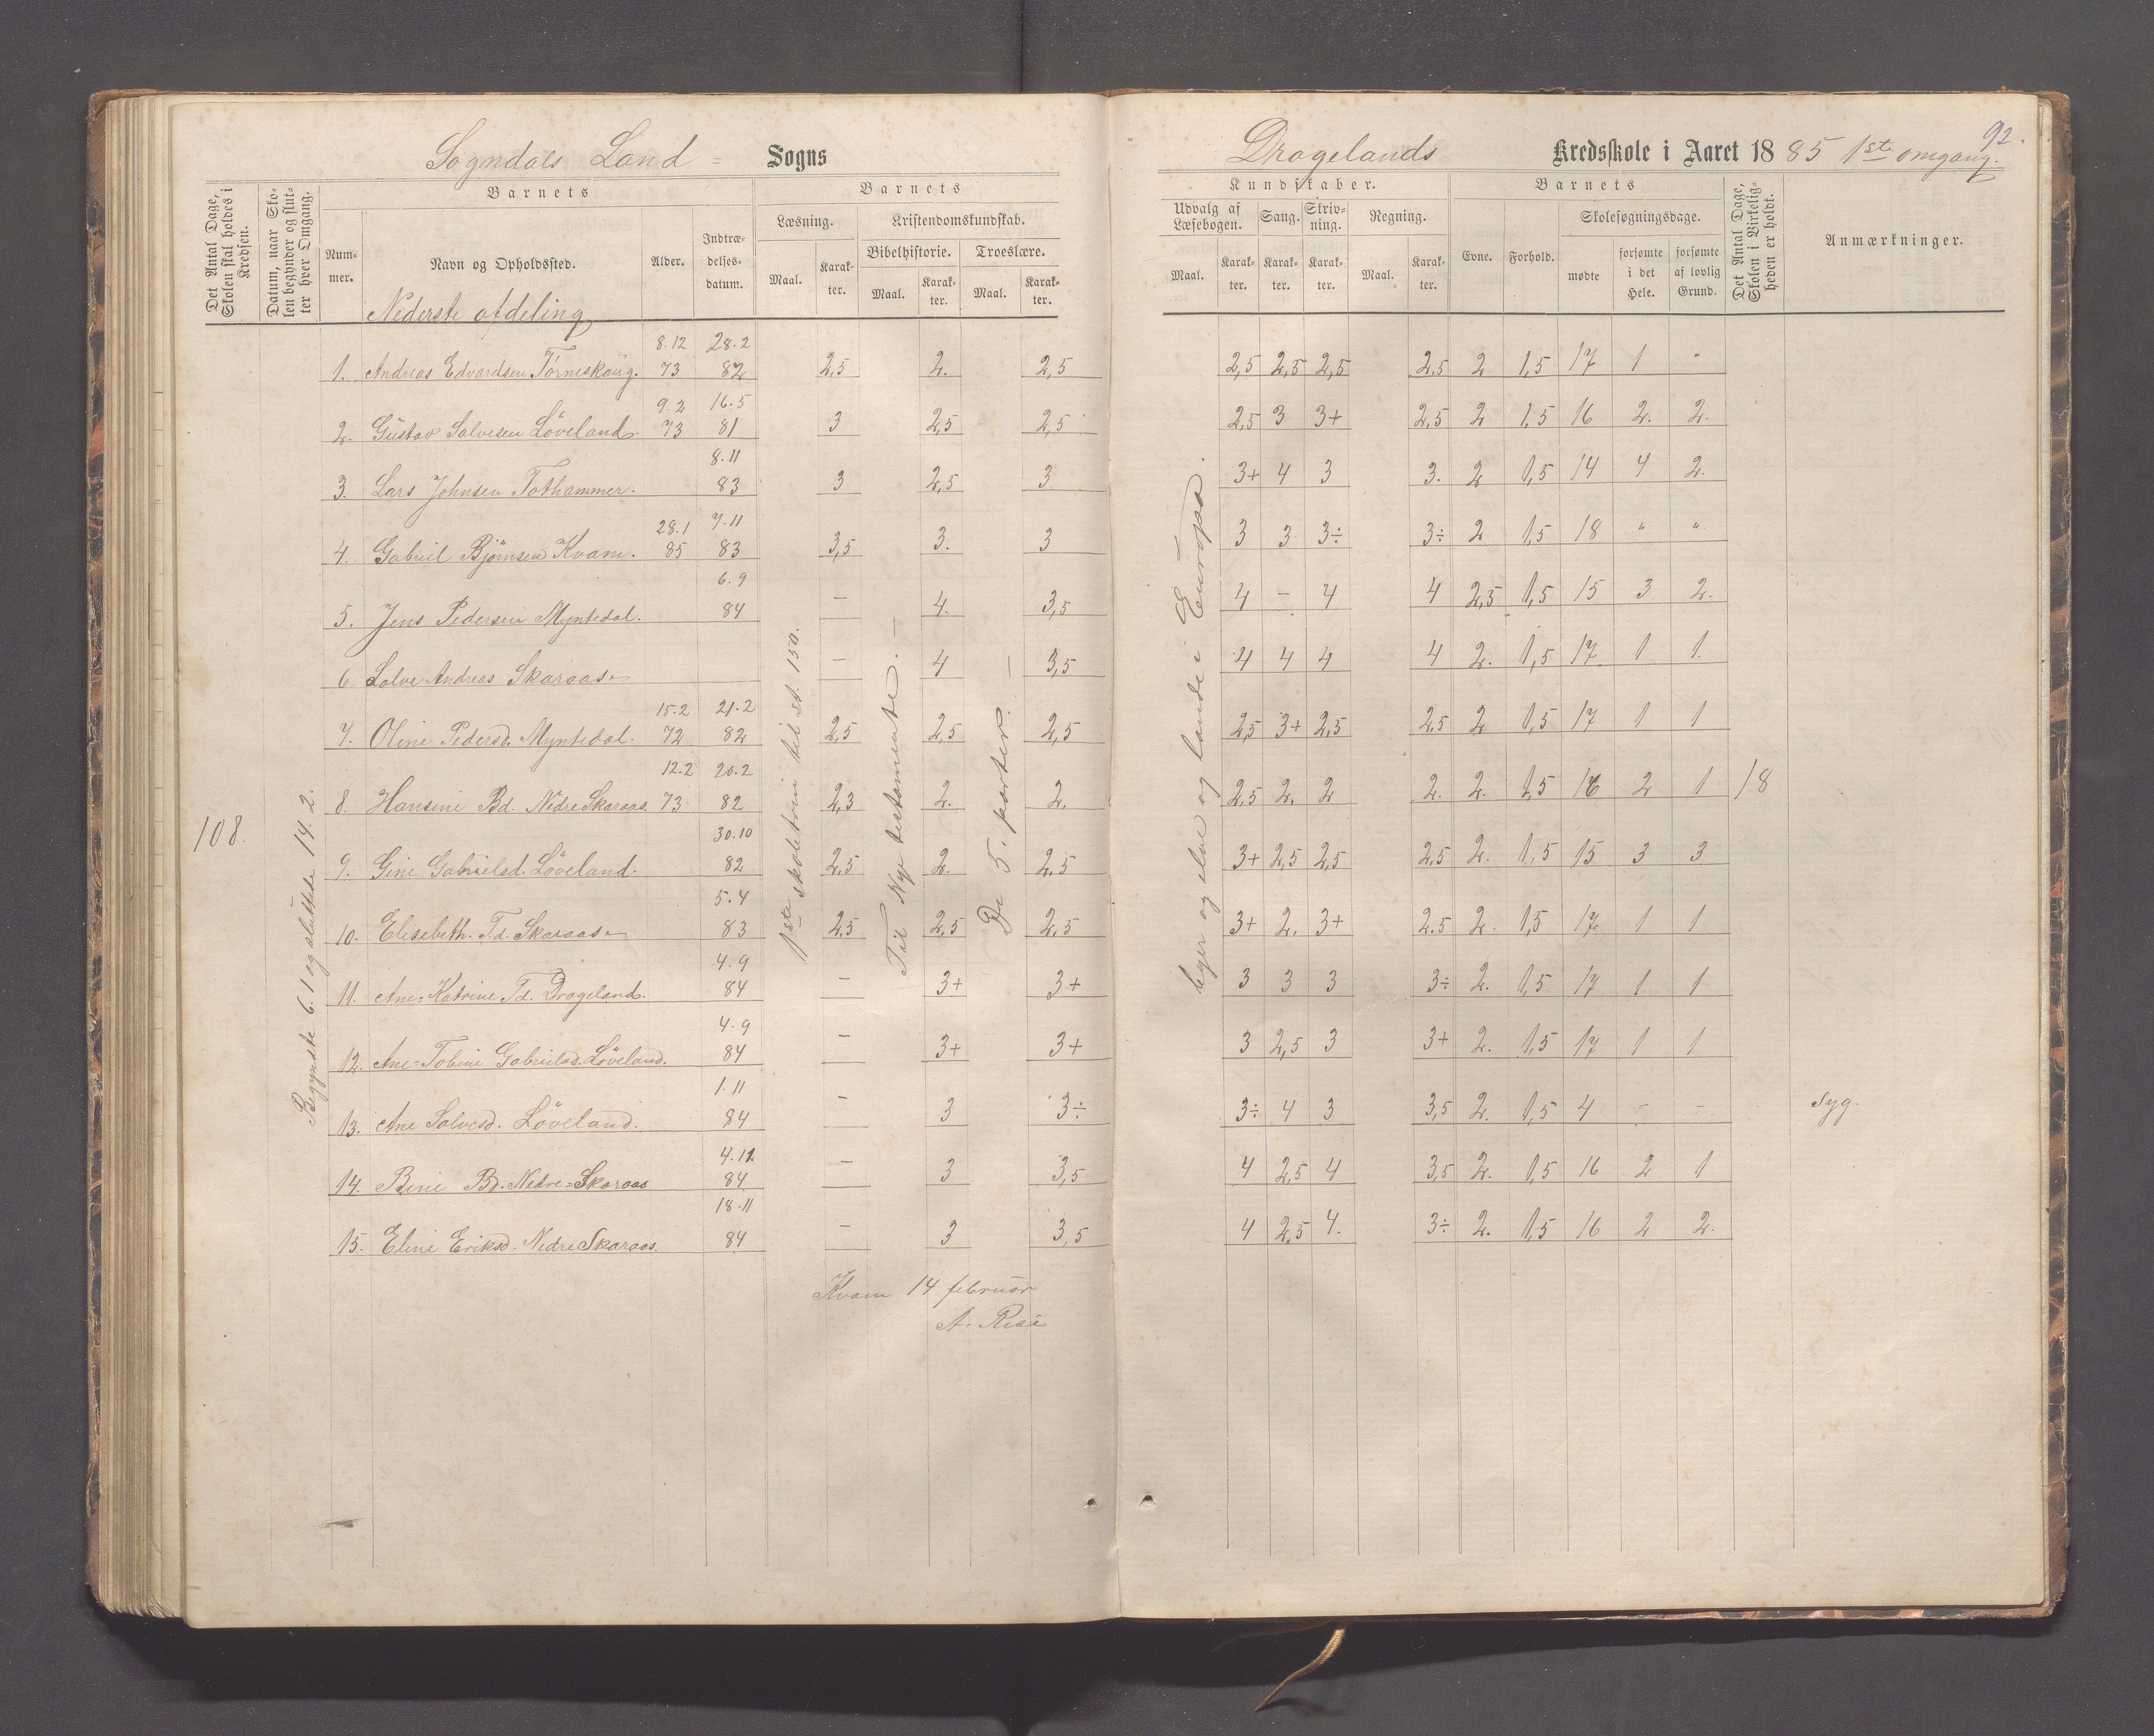 Sogndals Land = Sogns
Det Antal Dage, Skolen skal holdes i Kredsen.
Datum, naar Skolen begynder og slutter hver Omgang.
Barnets
Nummer.
Navn og Opholdssted.
Alder.
Indtrædelsesdatum.
Barnets
Læsning.
Kristendomskundskab.
Bibelhistorie.
Troeslære.
Maal.
Karakter.
Maal.
Karakter.
Maal.
Karakter.
Nederste afdeling
108.
Begyndte 6. 1 og sluttede 14. 2.
1ste skoletrin til st. 150.
Til Nye testamente. —
De 5. parter. —
8.12 28.2
1. Andreas Edvardsen Törneskaug. 73 82 2,5 2. 2,5
9.2 16.5
2. Gustav Salvesen Löveland. 73 81 3 2,5 2,5
8.11
3. Lars Johnsen Tothammer. 83 3 2,5 3
28.1 7.11
4. Gabriel Bjørnsen Kvam. 85 83 3,5 3. 3
6.9
5. Jens Pedersen Myntedal. 84 — 4. 3,5
6. Salve Andreas Skaraas. — 4 3,5
15.2 21.2
7. Oline Pedersd. Myntedal. 72 82 2,5 2,5 2,5
12.2 20.2
8. Hansine Bd. Nedre Skaraas. 73 82 2,3 2. 2.
30.10
9. Gine Gabrielsd. Löveland. 82 2,5 2. 2,5
5.4
10. Elisebeth. Td. Skaraas. 83 2,5 2,5 2,5
4.9
11. Ane=Katrine Td. Drageland. 84 — 3+ 3+
4.9
12. Ane=Tobine Gabrielsd. Löveland. 84 — 3+ 3+
1.11
13. Ane Salvesd. Löveland. 84 — 3 3÷
4.11.
14. Bine Bd. Nedre=Skaraas 84 — 3 3,5
18.11
15. Eline Eriksd. Nedre Skaraas. 84 — 3 3,5
Kvam 14 februar
A. Rise
Dragelands Kredsskole i Aaret 1885 1ste omgang.
92.
Kundskaber.
Udvalg af Læsebogen.
Sang.
Skrivning.
Regning.
Maal.
Karakter.
Karakter.
Karakter.
Maal.
Karakter.
Barnets
Evne.
Forhold.
Skolesøgningsdage.
mødte
forsømte i det Hele.
forsømte af lovlig Grund.
Det Antal Dage, Skolen i Virkeligheden er holdt.
Anmærkninger.
og elve og lande i Europa.
2,5 2,5 2,5 2,5 2 1,5 17 1 "
2,5 3 3+ 2,5 2 1,5 16 2. 2.
3+ 4 3 3. 2 1,5 14 4 2.
3 3 3÷ 3÷ 2 1,5 18 " "
4 — 4 4 2,5 1,5 15 3 2.
4 4 4 4 2. 1,5 17 1 1.
2,5 3+ 2,5 2,5 2 1,5 17 1 1
2,5 2. 2 2. 2. 1,5 16 2 1 18
3+ 2,5 2,5 2,5 2. 1,5 15 3 3
3+ 2. 3+ 2.5 2. 1,5 17 1 1
3 3 3 3÷ 2. 1,5 17 1 1
3 2,5 3 3+ 2. 1,5 17 1 1
3÷ 4 3 3,5 2. 1,5 4 — — syg.
4 2,5 4 3,5 2. 1,5 16 2 1
4 2,5 4. 3÷ 2. 1,5 16 2 2.